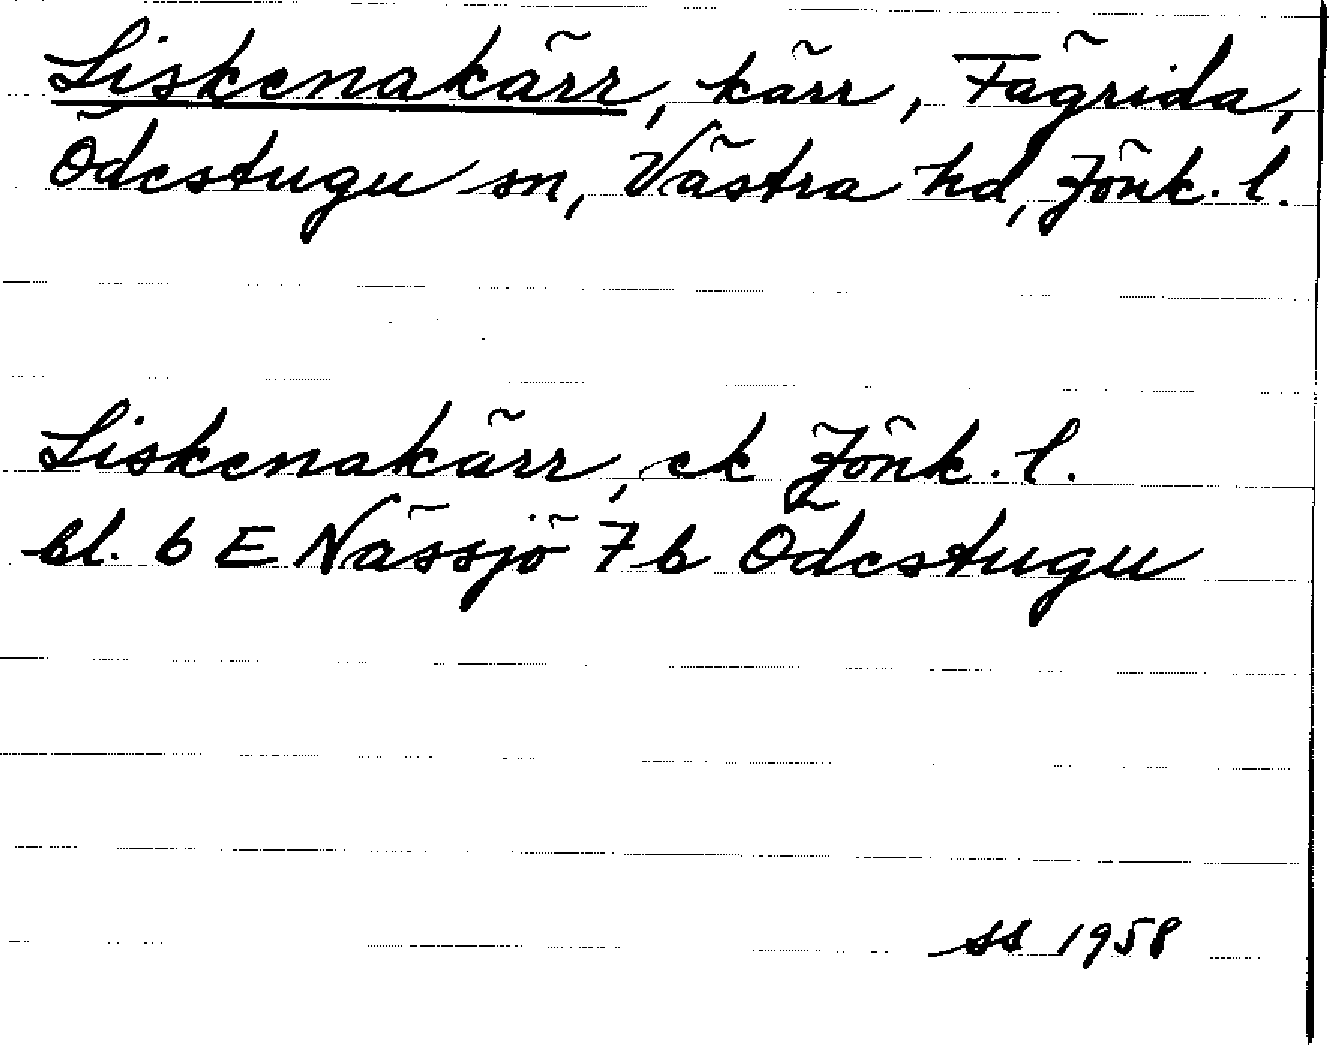 Liskenakärr, kärr, Fägrida,
Ödestugu sn, Västra hd, Jönk. l.
Liskenakärr, ek Jönk. l.
bl. 6 E Nässjö 7 b Ödestugu
SS 1958